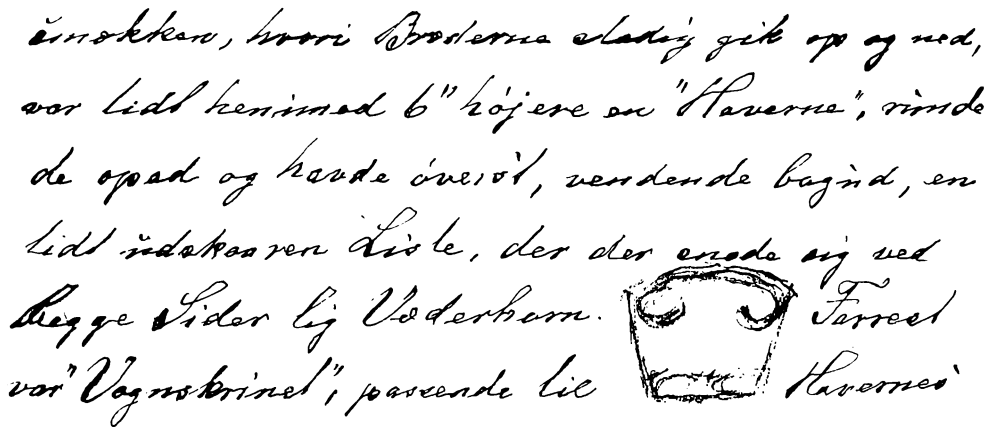 smøkken, hvori Brøderne stadig gik op og ned,
var lidt henimod 6" højere en "Haverne", runde
de opad og havde øverst, vendende bagud, en
lidt udskaaren Liste, der der endde sig ved
Begge Sider lig Væderhorn. Forrest
var "Vognskrinet", passende til Havernes